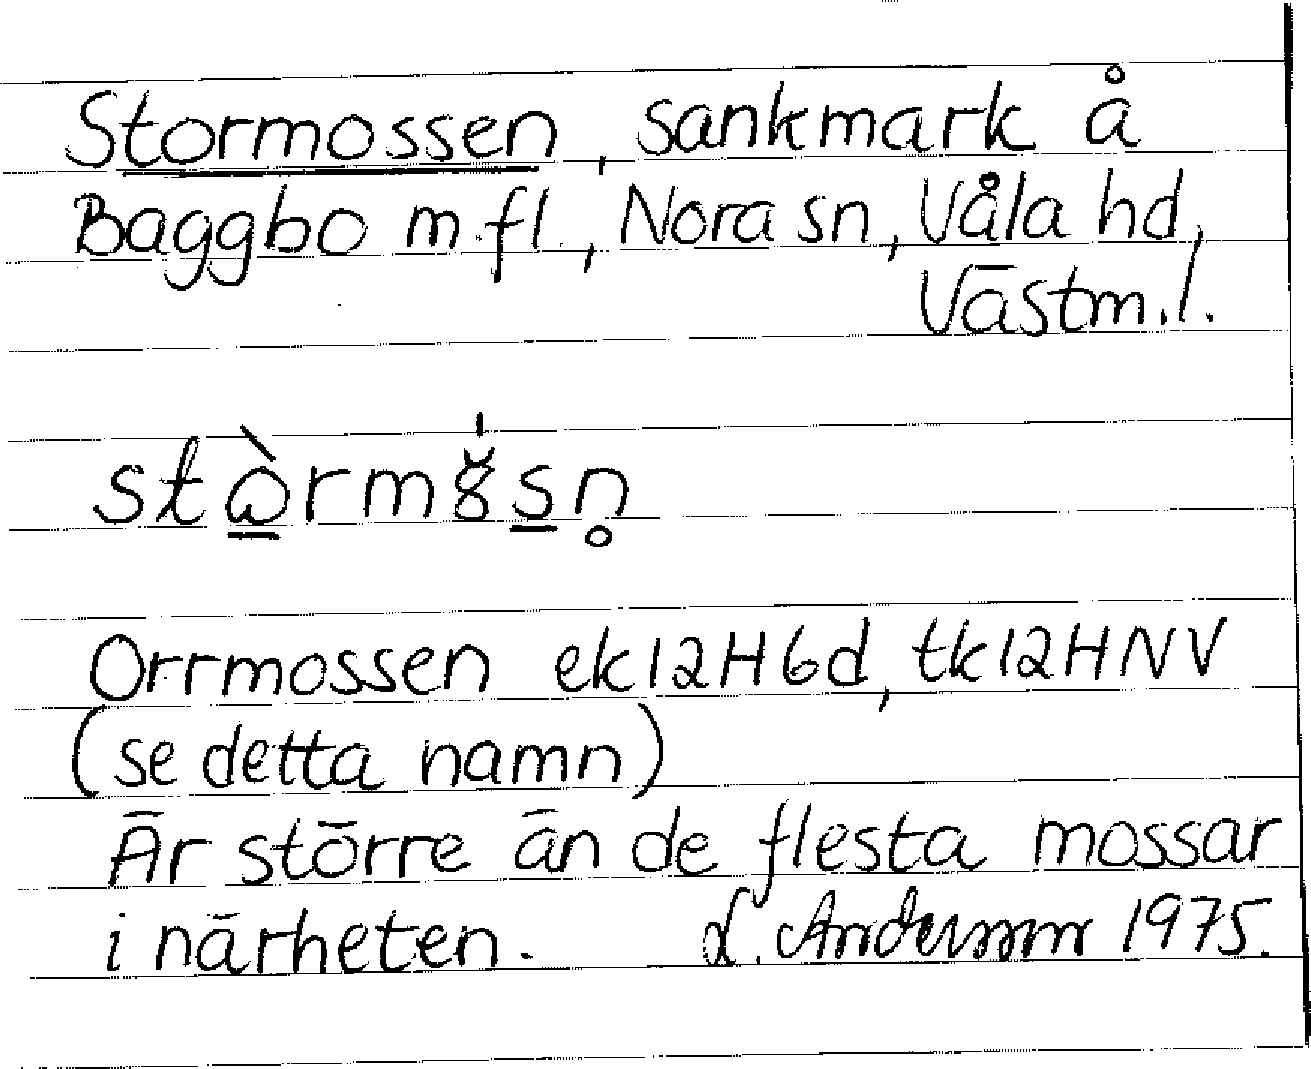 Stormossen, sankmark å
Baggbo m.fl., Nora sn, Våla hd,
Västm.l.
Orrmossen ek12H6d, tk12HNV
(se detta namn)
Är större än de flesta mossar
i närheten. L. Andersson 1975.